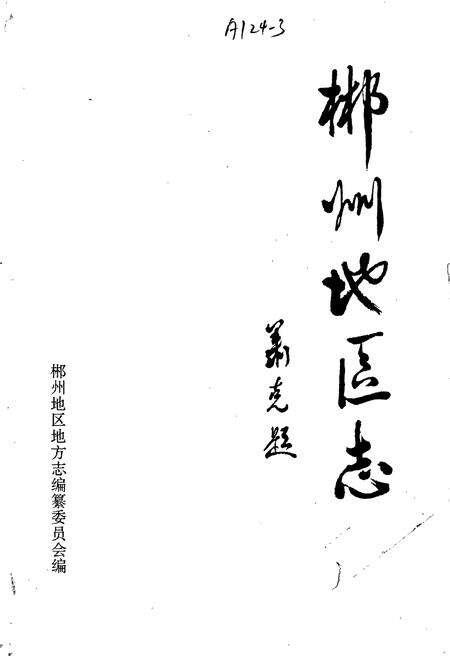 A124-3
郴州地区志
萧克题
郴州地区地方志编纂委员会编